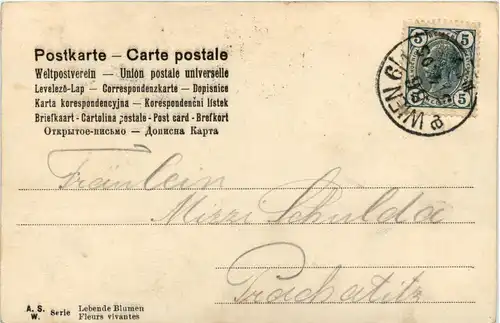 Postkarte – Carte postale
Weltpostverein – Union postale universelle
Levelező-Lap – Correspondenzkarte – Dopisnice
Karta korespondencyjna – Korespondenční lístek
Briefkaart - Cartolina postale - Post card - Brefkort
Открытое-письмо – Дописна Карта
5 5
5 5
WIEN
Fräulein
Mizzi Schulda
Prachatitz
A. S. W. Serie Lebende Blumen
Fleurs vivantes